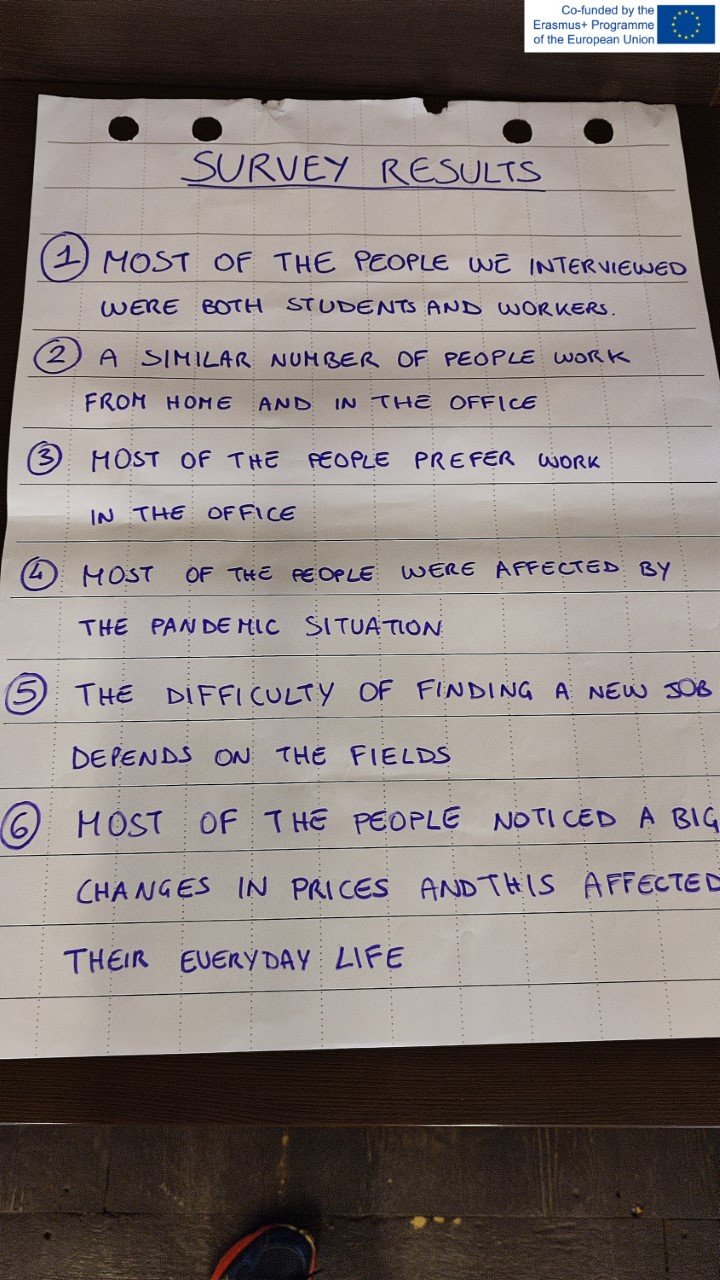 Co-funded by the
Erasmus+ Programme
of the European Union
SURVEY RESULTS
1 MOST OF THE PEOPLE WE INTERVIEWED
WERE BOTH STUDENTS AND WORKERS.
2 A SIMILAR NUMBER OF PEOPLE WORK
FROM HOME AND IN THE OFFICE
3 MOST OF THE PEOPLE PREFER WORK
IN THE OFFICE
4 MOST OF THE PEOPLE WERE AFFECTED BY
THE PANDEMIC SITUATION
5 THE DIFFICULTY OF FINDING A NEW JOB
DEPENDS ON THE FIELDS
6 MOST OF THE PEOPLE NOTICED A BIG
CHANGES IN PRICES AND THIS AFFECTED
THEIR EVERYDAY LIFE